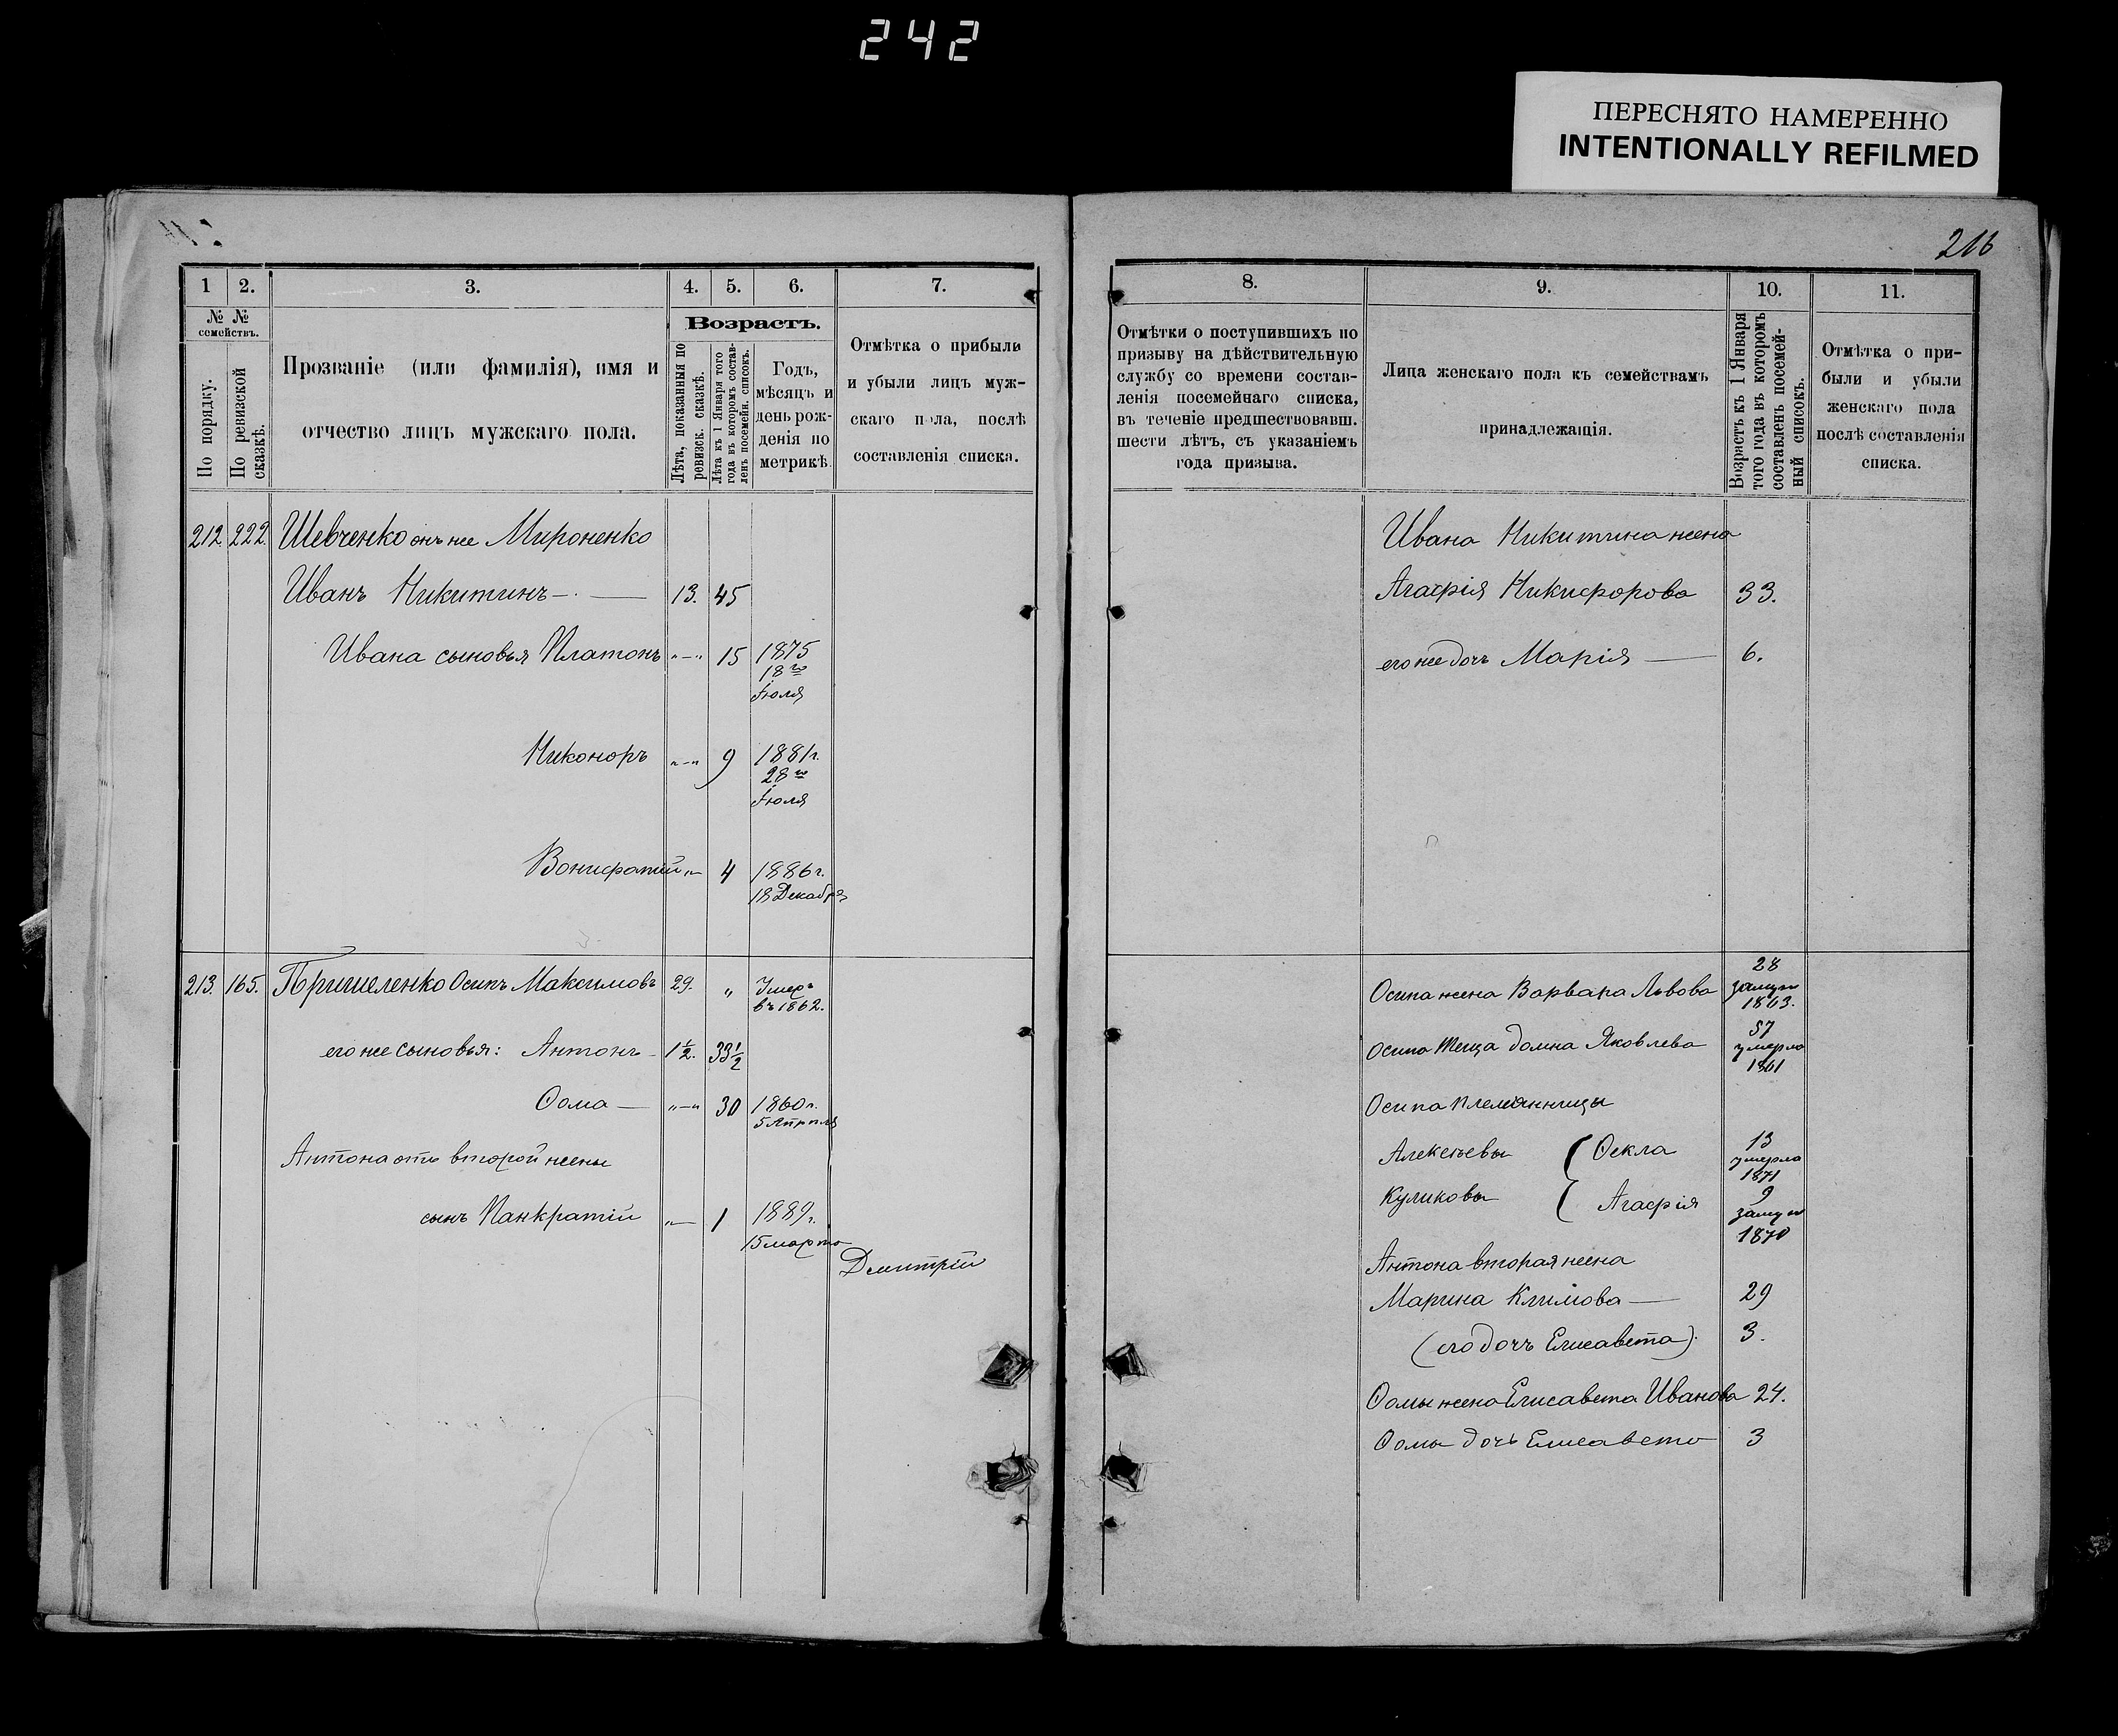 242
ПЕРЕСНЯТО НАМЕРЕННО
INTENTIONALLY REFILMED
216
1
2.
3.
4.
5.
6.
7.
№ №
семействъ.
По порядку.
По ревизской сказкѣ.
Прозваніе (или фамилія), имя и
отчество лицъ мужскаго пола.
Возрастъ.
Лѣта, показанныя по
ревизск. сказкѣ.
Лѣта къ 1 Января того
года въ которомъ состав-
ленъ посемейн. списокъ.
Годъ,
мѣсяцъ и
день рож-
денія по
метрикѣ
Отмѣтка о прибыли
и убыли лицъ муж-
скаго пола, послѣ
составленія списка.
212. 222. Шевченко онъ же Мироненко
Иванъ Никитинъ — 13. 45
Ивана сыновья Платонъ „—„ 15 1875
18го
Іюля
Никоноръ „—„ 9 1881г.
28го
Іюля
Вонифатій „— 4 1886г.
18 Декабря
213. 165. Пришеленко Осипъ Максимовъ 29. „ Умеръ
въ 1862.
его же сыновья: Антонъ 1½. 33½
Ѳома — „—„ 30 1860г.
5 Апрѣля
Антона отъ второй жены
сынъ Панкратій „— 1 1889г.
15 марта
Дмитрій
8.
9.
10.
11.
Отмѣтки о поступившихъ по
призыву на дѣйствительную
службу со времени состав-
ленія посемейнаго списка,
въ теченіе предшествовавш.
шести лѣтъ, съ указаніемъ
года призыва.
Лица женскаго пола къ семействамъ
принадлежащія.
Возрастъ къ 1 Января
того года въ которомъ
составленъ посемей-
ный списокъ.
Отмѣтка о при-
были и убыли
женскаго пола
послѣ составленія
списка.
Ивана Никитина жена
Агафія Никифорова 33.
его же дочь Марія — 6.
Осипа жена Варвара Львова 28
замуж
1863.
Осипа теща Домна Яковлева 57
умерла
1861
Осипа племянницы
Алексѣевы Ѳекла 13
умерла
1871
Куликовы Агафія 9
замуж
1870
Антона вторая жена
Марина Климова — 29
(его дочь Елисавета). 3.
Ѳомы жена Елисавета Иванова 24.
Ѳомы дочь Елисавета 3